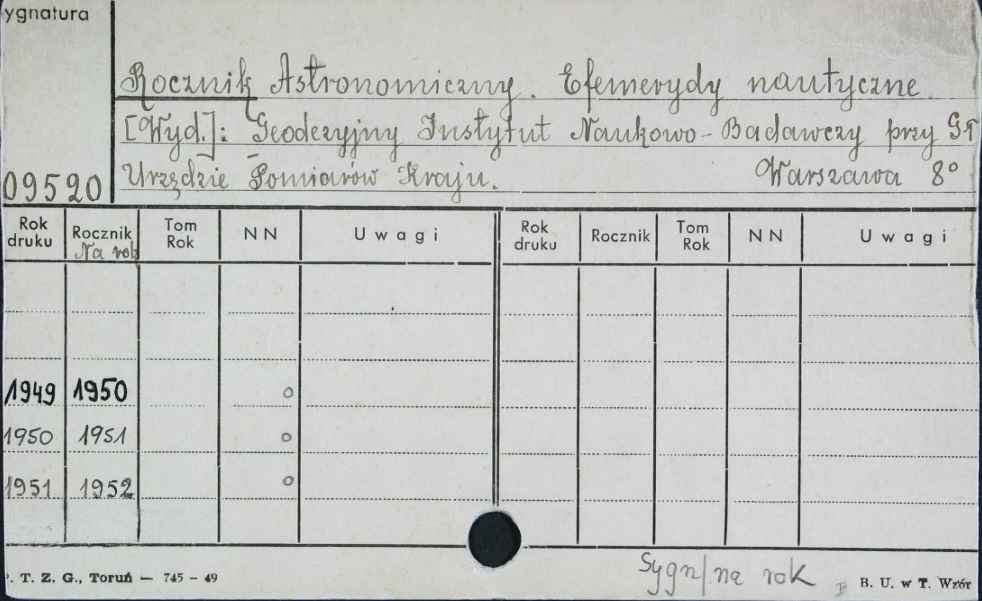 ygnatura
Rocznik Astronomiczny. Efemerydy nautyczne.
[Wyd.]: Geodezyjny Instytut Naukowo-Badawczy przy Gł
Urzędzie Pomiarów Kraju. Warszawa 8°
09520
Rok druku Rocznik Na rok Tom Rok NN Uwagi Rok druku Rocznik Tom Rok NN Uwagi
1949 1950 o
1950 1951 o
1951 1952 o
Sygn/na rok
. T. Z. G., Toruń — 745 – 49 B. U. w T. Wzór